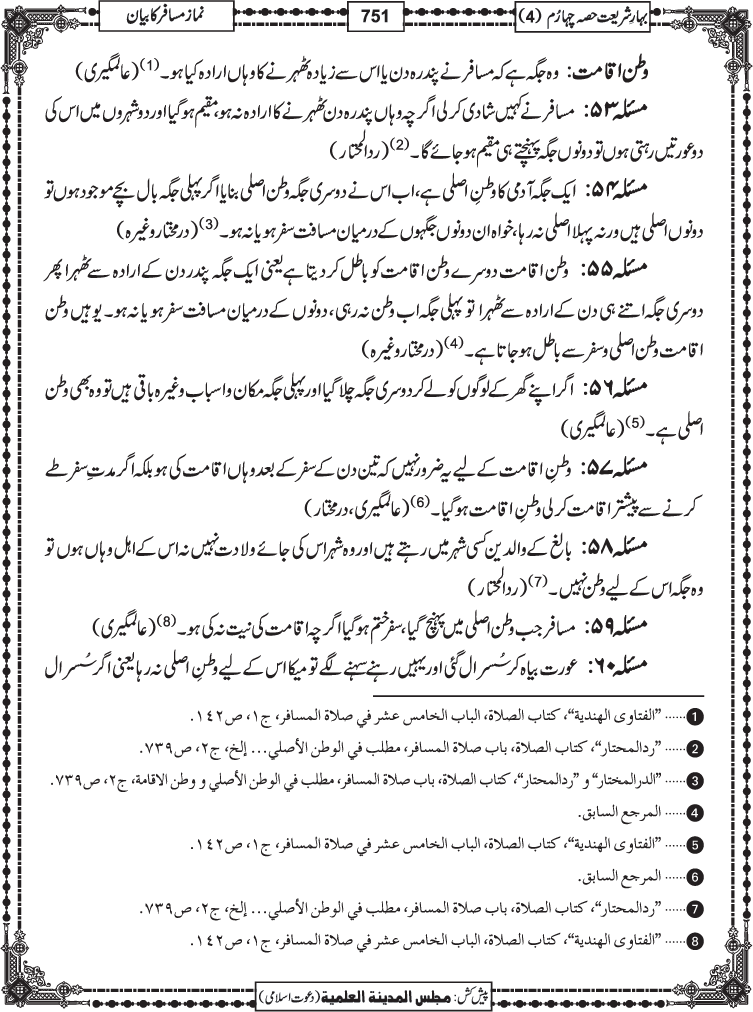 بہار شریعت حصہ چہارم (4)
751
نماز مسافر کا بیان
وطن اقامت: وہ جگہ ہے کہ مسافر نے پندرہ دن یا اس سے زیادہ ٹھہرنے کا وہاں ارادہ کیا ہو۔(1) (عالمگیری)
مسئلہ ۵۳: مسافر نے کہیں شادی کرلی اگرچہ وہاں پندرہ دن ٹھہرنے کا ارادہ نہ ہو، مقیم ہوگیا اور دو شہروں میں اس کی
دو عورتیں رہتی ہوں تو دونوں جگہ پہنچتے ہی مقیم ہو جائے گا۔(2) (ردالمحتار)
مسئلہ ۵۴: ایک جگہ آدمی کا وطنِ اصلی ہے، اب اس نے دوسری جگہ وطن اصلی بنایا اگر پہلی جگہ بال بچے موجود ہوں تو
دونوں اصلی ہیں ورنہ پہلا اصلی نہ رہا، خواہ ان دونوں جگہوں کے درمیان مسافت سفر ہو یا نہ ہو۔(3) (درمختار وغیرہ)
مسئلہ ۵۵: وطن اقامت دوسرے وطن اقامت کو باطل کر دیتا ہے یعنی ایک جگہ پندرہ دن کے ارادہ سے ٹھہرا پھر
دوسری جگہ اتنے ہی دن کے ارادہ سے ٹھہرا تو پہلی جگہ اب وطن نہ رہی، دونوں کے درمیان مسافت سفر ہو یا نہ ہو۔ یوہیں وطن
اقامت وطن اصلی و سفر سے باطل ہو جاتا ہے۔(4) (درمختار وغیرہ)
مسئلہ ۵۶: اگر اپنے گھر کے لوگوں کو لے کر دوسری جگہ چلا گیا اور پہلی جگہ مکان و اسباب وغیرہ باقی ہیں تو وہ بھی وطن
اصلی ہے۔(5) (عالمگیری)
مسئلہ ۵۷: وطنِ اقامت کے لیے یہ ضرور نہیں کہ تین دن کے سفر کے بعد وہاں اقامت کی ہو بلکہ اگر مدتِ سفر طے
کرنے سے پیشتر اقامت کرلی وطنِ اقامت ہوگیا۔(6) (عالمگیری، درمختار)
مسئلہ ۵۸: بالغ کے والدین کسی شہر میں رہتے ہیں اور وہ شہر اس کی جائے ولادت نہیں نہ اس کے اہل وہاں ہوں تو
وہ جگہ اس کے لیے وطن نہیں۔(7) (ردالمحتار)
مسئلہ ۵۹: مسافر جب وطن اصلی میں پہنچ گیا، سفر ختم ہوگیا اگرچہ اقامت کی نیت نہ کی ہو۔(8) (عالمگیری)
مسئلہ ۶۰: عورت بیاہ کر سُسرال گئی اور یہیں رہنے سہنے لگے تو میکا اس کے لیے وطنِ اصلی نہ رہا یعنی اگر سُسرال
1...... "الفتاوی الهندية"، كتاب الصلاة، الباب الخامس عشر في صلاة المسافر، ج١، ص١٤٢.
2...... "ردالمحتار"، كتاب الصلاة، باب صلاة المسافر، مطلب في الوطن الأصلي... إلخ، ج٢، ص٧٣٩.
3...... "الدرالمختار" و "ردالمحتار"، كتاب الصلاة، باب صلاة المسافر، مطلب في الوطن الأصلي و وطن الاقامة، ج٢، ص٧٣٩.
4...... المرجع السابق.
5...... "الفتاوی الهندية"، كتاب الصلاة، الباب الخامس عشر في صلاة المسافر، ج١، ص١٤٢.
6...... المرجع السابق.
7...... "ردالمحتار"، كتاب الصلاة، باب صلاة المسافر، مطلب في الوطن الأصلي... إلخ، ج٢، ص٧٣٩.
8...... "الفتاوی الهندية"، كتاب الصلاة، الباب الخامس عشر في صلاة المسافر، ج١، ص١٤٢.
پیش کش: مجلس المدینۃ العلمیۃ (دعوت اسلامی)